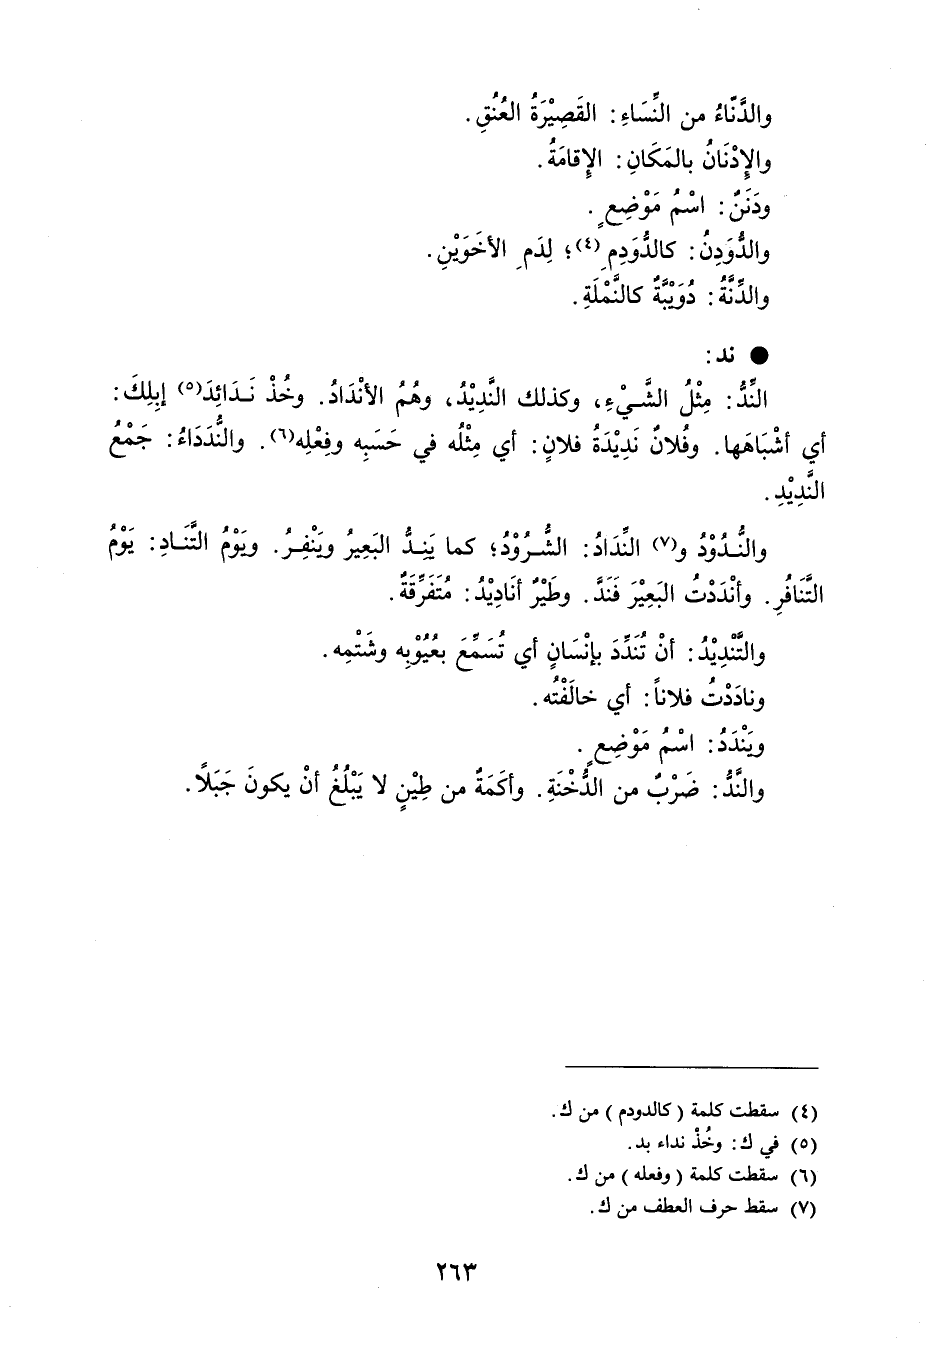 والدَّنّاءُ من النِّسَاءِ: القَصِيْرَةُ العُنُقِ.
والإِدْنَانُ بالمَكَانِ: الإِقامَةُ.
ودَنَنٌ: اسْمُ مَوْضِعٍ.
والدُّوَدِنُ: كالدُّوَدِمِ(٤)؛ لِدَمِ الأخَوَيْنِ.
والدِّنَّةُ: دُوَيْبَّةٌ كالنَّمْلَةِ.
● ند:
النِّدُّ: مِثْلُ الشَّيْءِ، وكذلك النَّدِيْدُ، وهُمُ الأنْدَادُ. وخُذْ نَدَائِدَ(٥) إبِلِكَ:
أي أشْبَاهَها. وفُلانٌ نَدِيْدَةُ فلانٍ: أي مِثْلُه في حَسَبِه وفِعْلِه(٦). والنُّدَدَاءُ: جَمْعُ
النَّدِيْدِ.
والنُّدُوْدُ و(٧) النِّدَادُ: الشُّرُوْدُ؛ كما يَنِدُّ البَعِيرُ ويَنْفِرُ. ويَوْمُ التَّنَادِ: يَوْمُ
التَّنَافُرِ. وأنْدَدْتُ البَعِيْرَ فَنَدَّ. وطَيْرٌ أنَادِيْدُ: مُتَفَرِّقَةٌ.
والتَّنْدِيْدُ: أنْ تُنَدِّدَ بإنْسَانٍ أي تُسَمِّعَ بعُيُوْبِه وشَتْمِه.
ونادَدْتُ فلاناً: أي خالَفْتُه.
ويَنْدَدُ: اسْمُ مَوْضِعٍ.
والنَّدُّ: ضَرْبٌ من الدُّخْنَةِ. وأكَمَةٌ من طِيْنٍ لا يَبْلُغُ أنْ يكونَ جَبَلاً.
(٤) سقطت كلمة (كالدودم) من ك.
(٥) في ك: وخُذْ نداء بد.
(٦) سقطت كلمة (وفعله) من ك.
(٧) سقط حرف العطف من ك.
٢٦٣